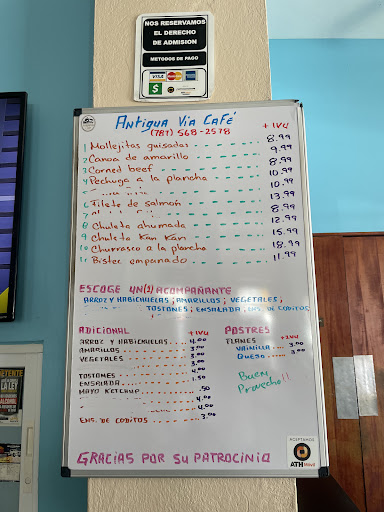 NOS RESERVAMOS
EL DERECHO
DE ADMISION
METODOS DE PAGO
VISA
$
ANTIGUA VIA CAFÉ
(787) 568-2578 + IVU
1 Mollejitas guisadas 8.99
2 Canoa de amarillo 9.99
3 Corned beef 8.99
4 Pechuga a la plancha 10.99
10.99
6 Filete de salmon 13.99
8.99
8 Chuleta ahumada 12.99
9 Chuleta Kan Kan 15.99
10 Churrasco a la plancha 18.99
11 Bistec empanado 11.99
ESCOGE UN(1) ACOMPAÑANTE
ARROZ Y HABICHUELAS; AMARILLOS; VEGETALES;
TOSTONES; ENSALADA; ENS. DE CODITOS
ADICIONAL +IVU
ARROZ Y HABICHUELAS 4.00
AMARILLOS 3.00
VEGETALES 3.00
3.00
TOSTONES 4.00
ENSALADA 1.50
MAYO KETCHUP .50
4.00
4.00
ENS. DE CODITOS 3.00
POSTRES
FLANES +IVU
VAINILLA 3.00
QUESO 3.00
Buen
Provecho!!
GRACIAS POR SU PATROCINIO
ACEPTAMOS
ATH móvil